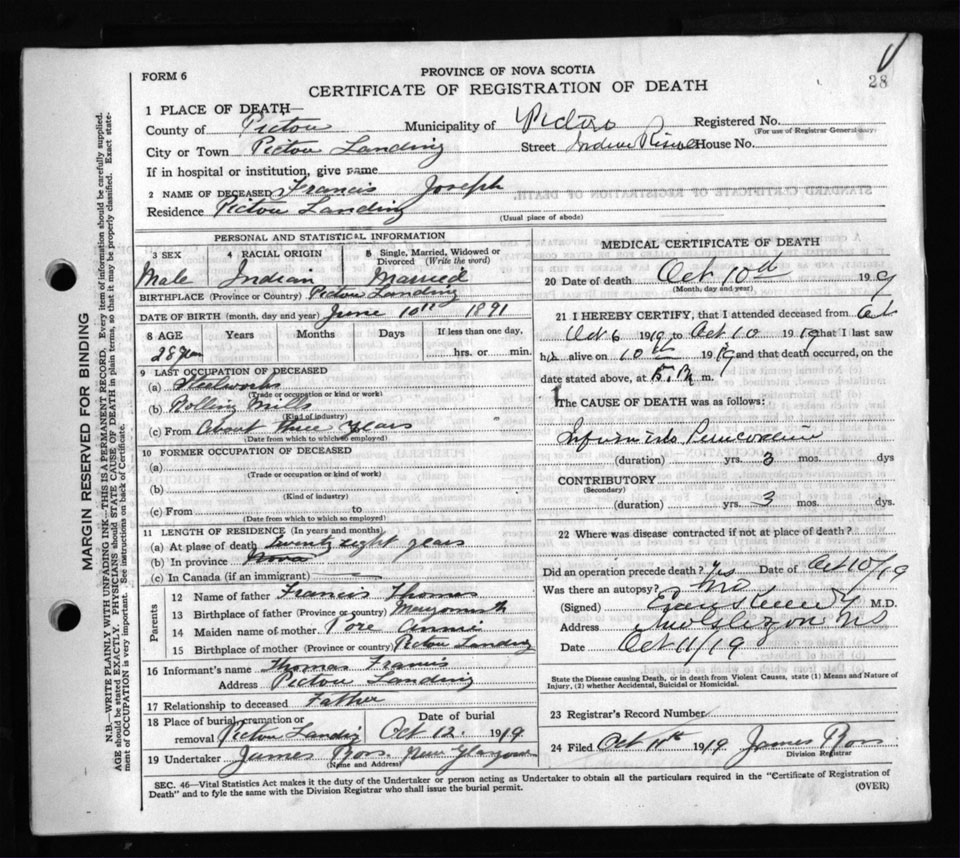 28
FORM 6
PROVINCE OF NOVA SCOTIA
CERTIFICATE OF REGISTRATION OF DEATH
1 PLACE OF DEATH—
County of Pictou Municipality of Pictou Registered No.
(For use of Registrar General only)
City or Town Pictou Landing Street Indian House No.
If in hospital or institution, give name
2 NAME OF DECEASED Francis Joseph
Residence Pictou Landing
(Usual place of abode)
PERSONAL AND STATISTICAL INFORMATION
3 SEX 4 RACIAL ORIGIN 5 Single, Married, Widowed or Divorced (Write the word)
Male Indian Married
BIRTHPLACE (Province or Country) Pictou Landing
DATE OF BIRTH (month, day and year) June 10th 1891
8 AGE Years Months Days If less than one day,
28 hrs. or min.
9 LAST OCCUPATION OF DECEASED
(a) Steelworks
(Trade or occupation or kind or work)
(b) Rolling Mills
(Kind of industry)
(c) From About three years
(Date from which to which so employed)
10 FORMER OCCUPATION OF DECEASED
(a)
(Trade or occupation or kind of work)
(b)
(Kind of industry)
(c) From to
(Date from which to which so employed)
11 LENGTH OF RESIDENCE (In years and months)
(a) At place of death twenty eight years
(b) In province
(c) In Canada (if an immigrant)
Parents
12 Name of father Francis Thomas
13 Birthplace of father (Province or country)
14 Maiden name of mother Annie
15 Birthplace of mother (Province or country) Pictou Landing
16 Informant's name Thomas Francis
Address Pictou Landing
17 Relationship to deceased Father
18 Place of burial, cremation or removal Pictou Landing Date of burial Oct 12. 1919
19 Undertaker James Ross New Glasgow
(Name and Address)
MEDICAL CERTIFICATE OF DEATH
20 Date of death Oct 10th 1919
(Month, day and year)
21 I HEREBY CERTIFY, that I attended deceased from Oct
Oct 6 1919 to Oct 10 1919 that I last saw
him alive on 10th 1919 and that death occurred, on the
date stated above, at 5 P. m.
The CAUSE OF DEATH was as follows:
(duration) yrs. 3 mos. dys
CONTRIBUTORY
(Secondary)
(duration) yrs. 3 mos. dys.
22 Where was disease contracted if not at place of death?
Did an operation precede death? Yes Date of Oct 10/19
Was there an autopsy? No
(Signed) M.D.
Address New Glasgow NS
Date Oct 11/19
State the Disease causing Death, or in death from Violent Causes, state (1) Means and Nature of Injury, (2) whether Accidental, Suicidal or Homicidal.
23 Registrar's Record Number
24 Filed Oct 11th 1919 James Ross
Division Registrar
SEC. 46—Vital Statistics Act makes it the duty of the Undertaker or person acting as Undertaker to obtain all the particulars required in the "Certificate of Registration of
Death" and to fyle the same with the Division Registrar who shall issue the burial permit.
(OVER)
MARGIN RESERVED FOR BINDING
N.B.—WRITE PLAINLY WITH UNFADING INK—THIS IS A PERMANENT RECORD. Every item of information should be carefully supplied.
AGE should be stated EXACTLY. PHYSICIANS should STATE CAUSE OF DEATH in plain terms, so that it may be properly classified. Exact statement
of OCCUPATION is very important. See instructions on back of Certificate.